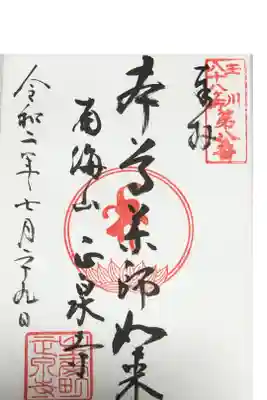 玉川第八番
八十八ヶ所
奉拝
本尊薬師如来
南海山 正泉寺
令和二年七月二九日